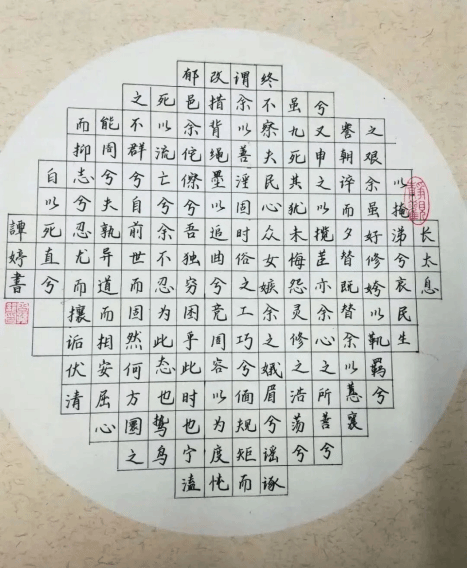 长太息
以掩涕兮哀民生
之艰余虽好修姱以鞿羁兮
謇朝谇而夕替既替余以蕙纕
兮又申之以揽茝亦余心之所善兮
虽九死其犹未悔怨灵修之浩荡兮
终不察夫民心众女嫉余之娥眉兮谣诼
谓余以善淫固时俗之工巧兮偭规矩而
改措背绳墨以追曲兮竞周容以为度忳
郁邑余侘傺兮吾独穷困乎此时也宁溘
死以流亡兮余不忍为此态也鸷鸟
之不群兮自前世而固然何方圜之
能周兮夫孰异道而相安屈心
而抑志兮忍尤而攘诟伏清
白以死直兮
譚婷書